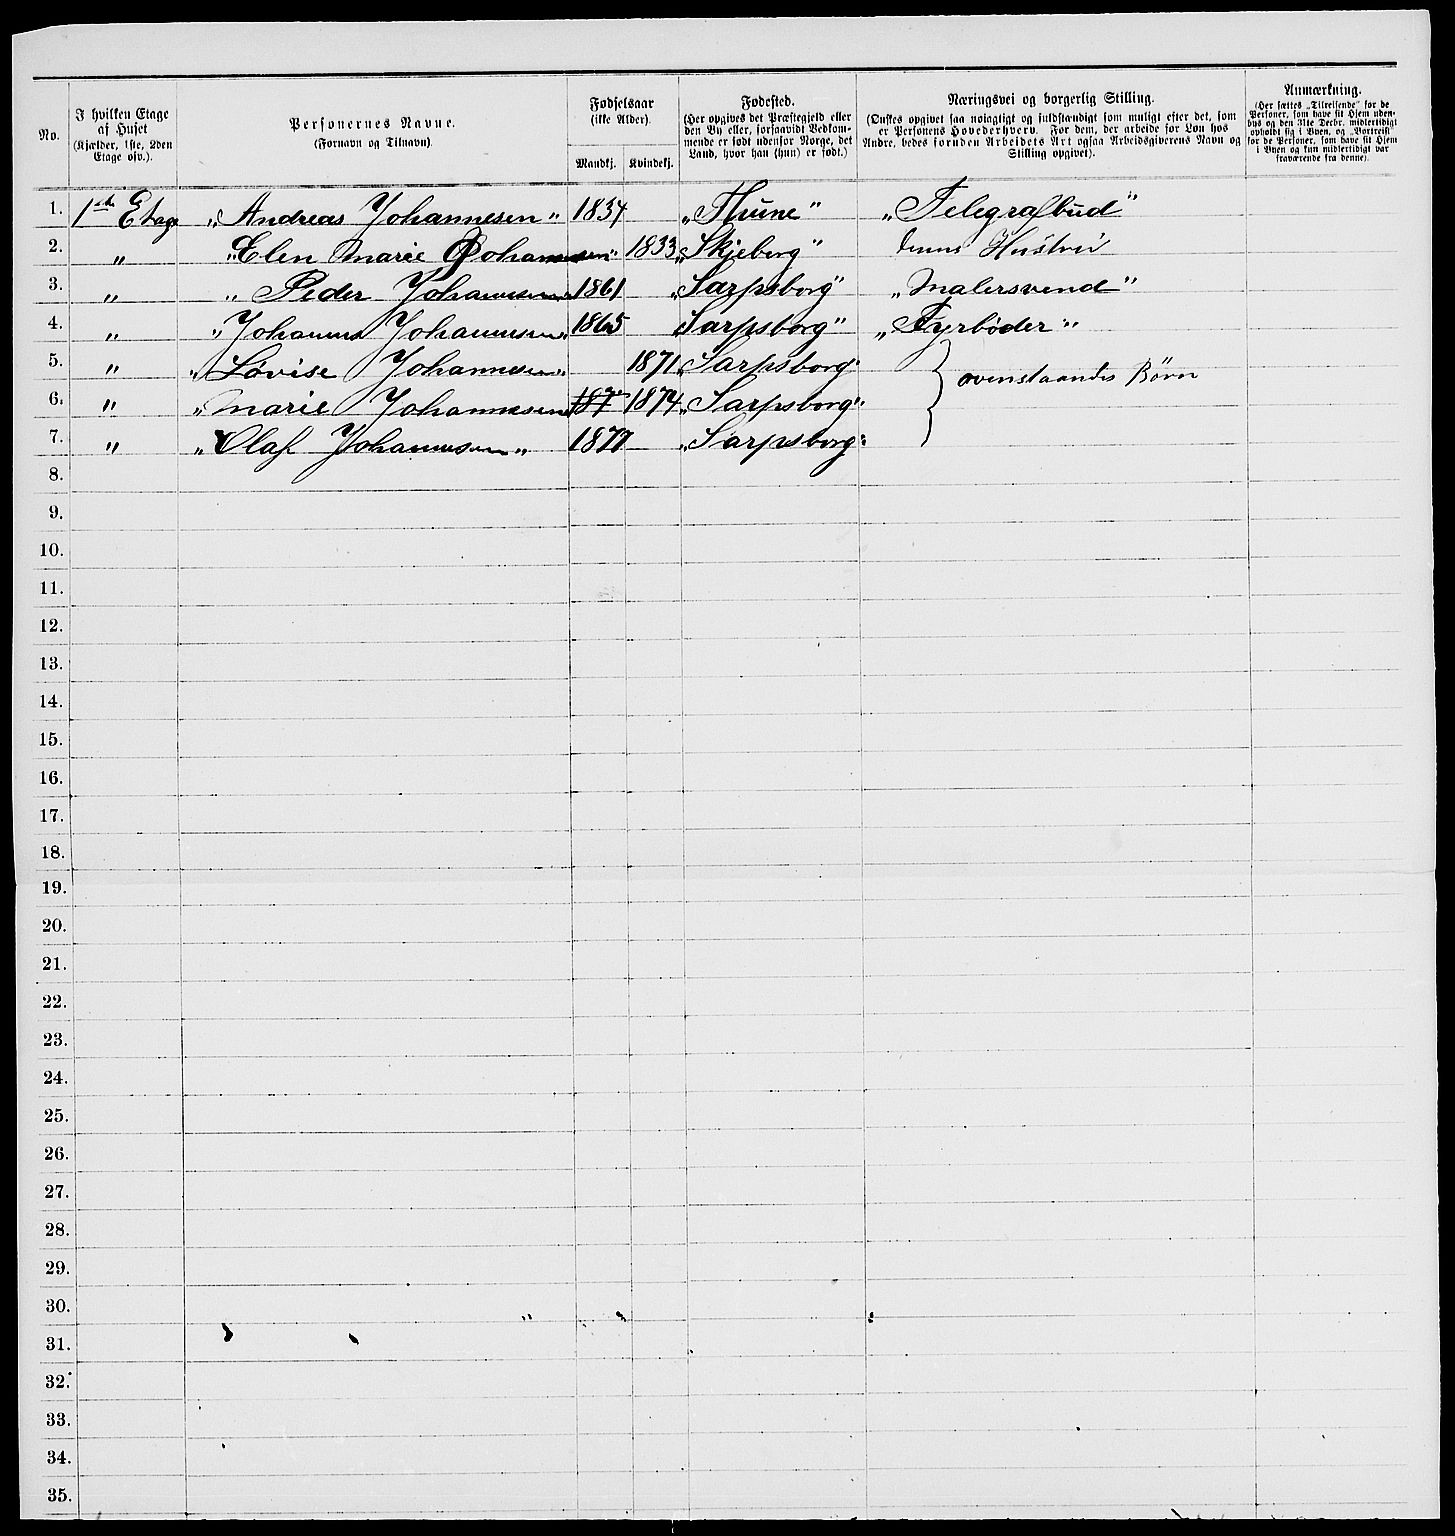 No.
I hvilken Etage af Huset (Kjælder, 1ste, 2den Etage osv.).
Personernes Navne. (Fornavn og Tilnavn).
Fødselsaar (ikke Alder). Mandkj. Kvindekj.
Fødested. (Her opgives det Præstegjeld eller den By eller, forsaavidt Vedkommende er født udenfor Norge, det Land, hvor han (hun) er født.)
Næringsvei og borgerlig Stilling. (Ønskes opgivet saa nøiagtigt og fuldstændigt som muligt efter det, som er Personens Hovederhverv. For dem, der arbeide for Løn hos Andre, bedes foruden Arbeidets Art ogsaa Arbeidsgiverens Navn og Stilling opgivet).
Anmærkning. (Her sættes „Tilreisende“ for de Personer, som have sit Hjem udenbys og den 31te Decbr. midlertidigt opholdt sig i Byen, og „Bortreist“ for de Personer, som have sit Hjem i Byen og kun midlertidigt var fraværende fra denne).
1. 1ste Etage „Andreas Johannesen“ 1834 „Thune“ „Telegrafbud“
2. „ „Elen Marie Johannesen“ 1833 „Skjeberg“ hans Hustru
3. „ „Peder Johannesen“ 1861 „Sarpsborg“ „Malersvend“
4. „ „Johannes Johannesen“ 1865 Sarpsborg“ „Fyrbøder“
5. „ „Lovise Johannesen“ 1871 „Sarpsborg“
ovenstaandes Børn
6. „ „Marie Johannesen 187 1874 „Sarpsborg“
7. „ „Olaf Johannesen“ 1877 „Sarpsborg“
8.
9.
10.
11.
12.
13.
14.
15.
16.
17.
18.
19.
20.
21.
22.
23.
24.
25.
26.
27.
28.
29.
30.
31.
32.
33.
34.
35.